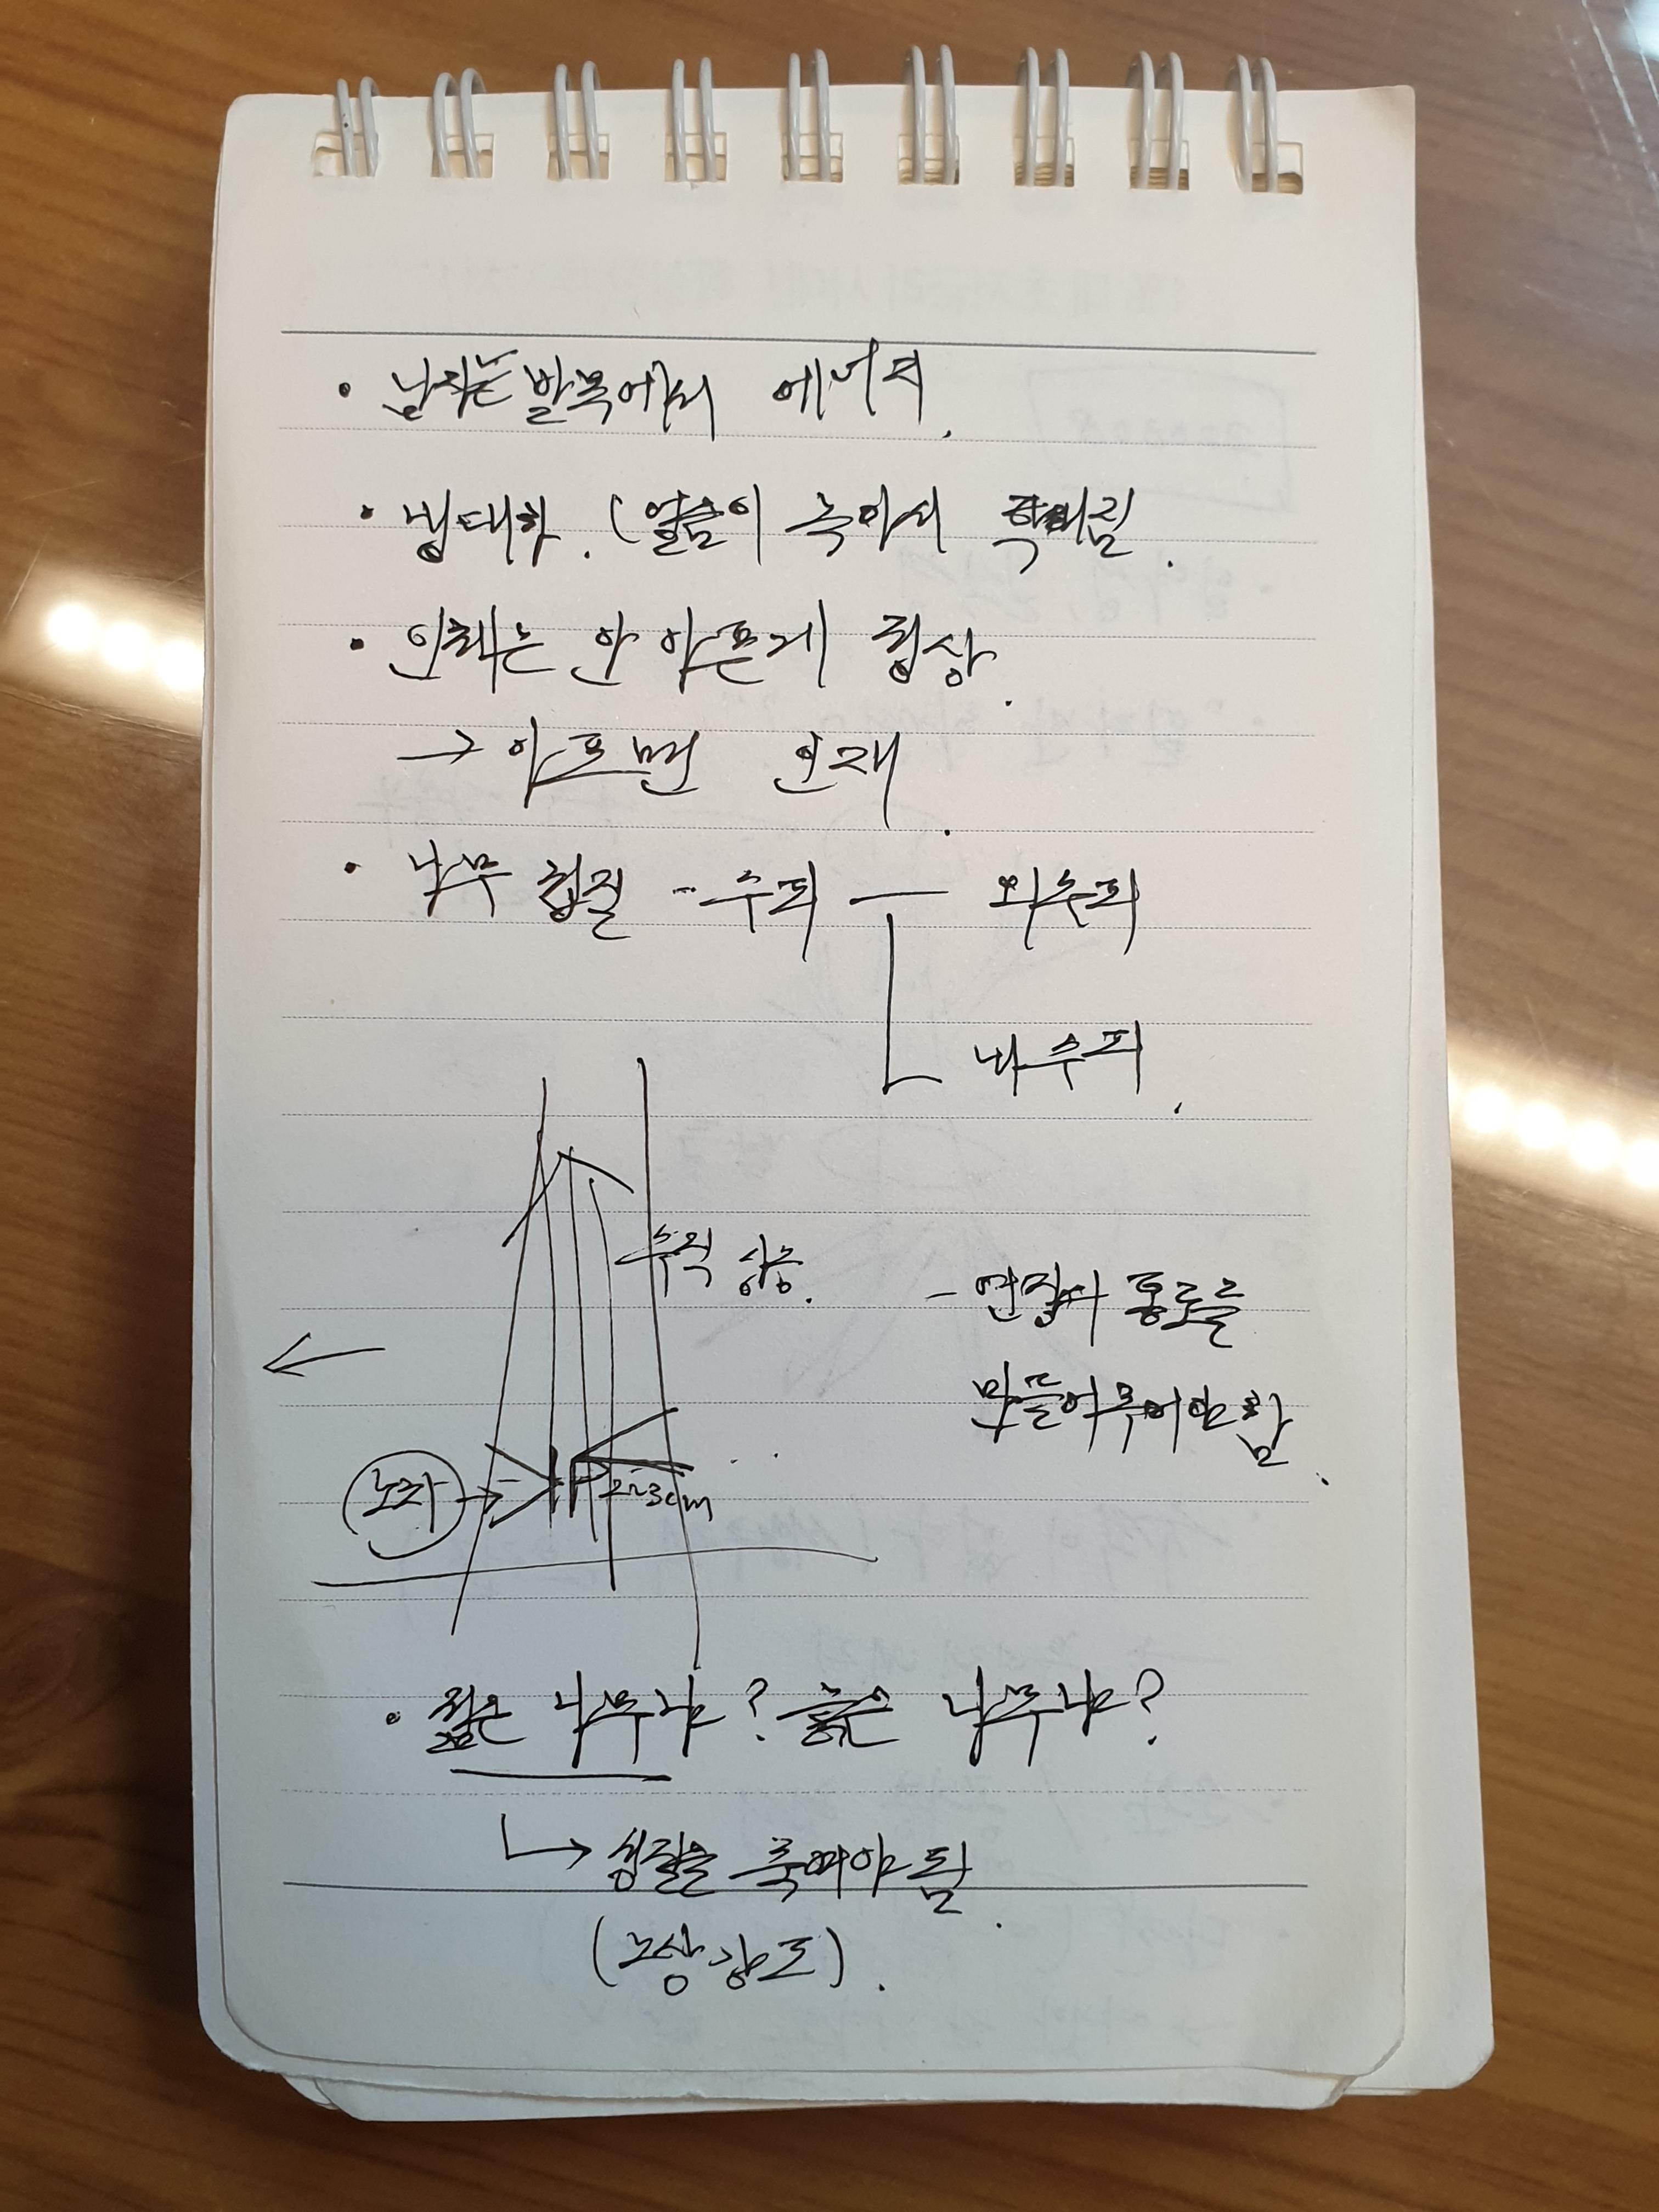 · 남자는 발목에서 에너지.
· 냉대하. (얼음이 녹아서 차가워짐.
· 인체는 안 아픈게 정상.
→ 아프면 인재.
· 나무 첨질 - 수피 — 외수피
내수피.
수직 상승.
- 연질이 통로를
만들어 주어야 함.
노자
2~3cm
· 젊은 나무냐? 늙은 나무냐?
↳ 성질을 죽여야 됨.
(노상강도).